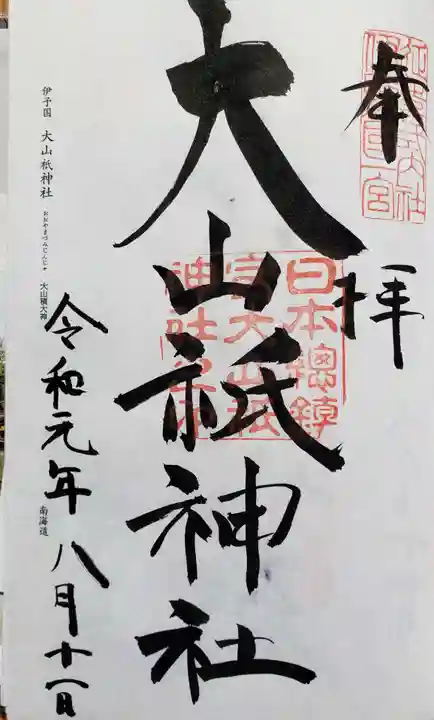 奉拝
大山祇神社
令和元年八月十一日
伊予国 大山祇神社 おおやまづみじんじゃ 大山積大神 南海道
日本總鎮
守大山祇
神社之印